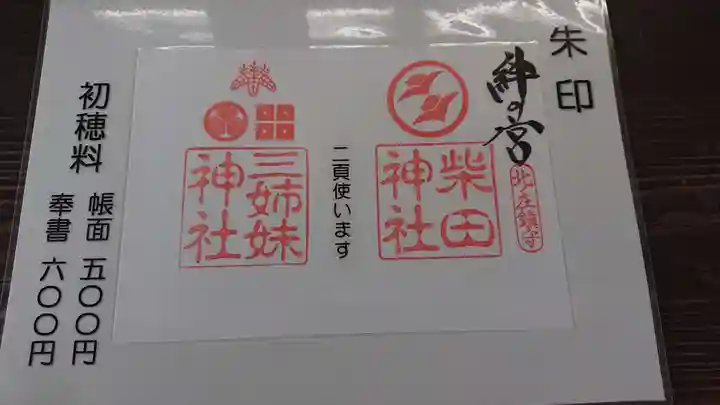 朱印
絆の宮
北ノ庄鎮守
柴田神社
二頁使います
三姉妹神社
初穂料
帳面 五〇〇円
奉書 六〇〇円